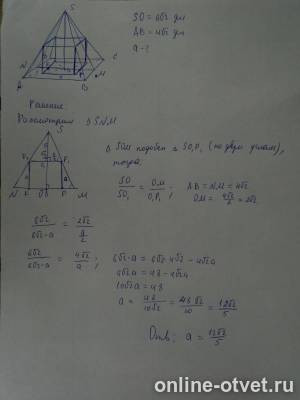 S
SO = 6√2 дм
AB = 4√2 дм
a - ?
N
C
M
A
B
Решение
Рассмотрим Δ SNM
S
Δ SOM подобен Δ SO₁P₁ (по двум углам),
тогда:
SO/SO₁ = OM/O₁P₁ ; AB = NM = 4√2
OM = 4√2/2 = 2√2
N K O P M
6√2/(6√2-a) = 2√2/(a/2)
6√2/(6√2-a) = 4√2/a ; 6√2·a = 6√2·4√2 - 4√2a
6√2a = 48 - 4√2a
10√2a = 48
a = 48/10√2 = 48√2/20 = 12√2/5
Отв: a = 12√2/5
online-otvet.ru